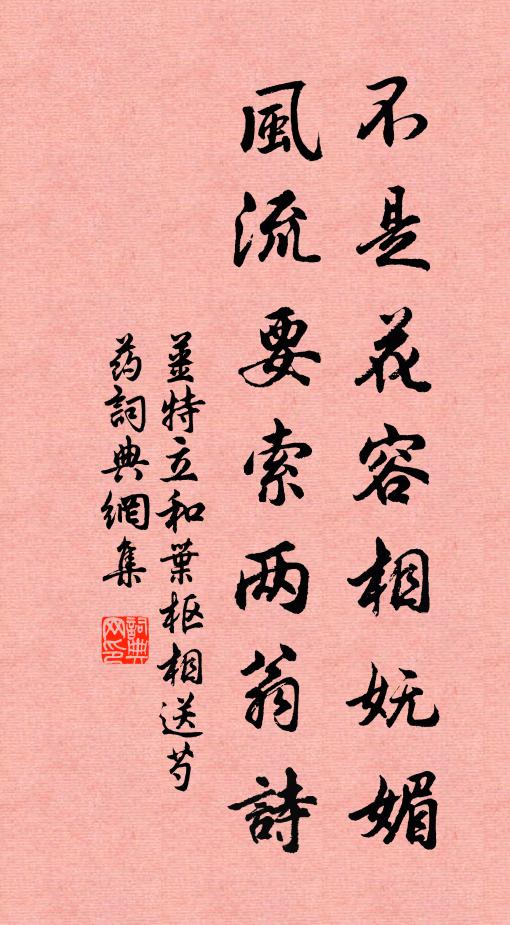 不是花容相妩媚
風流要索两翁詩
姜特立和葉枢相送芍
药詞典網集
詞典网印